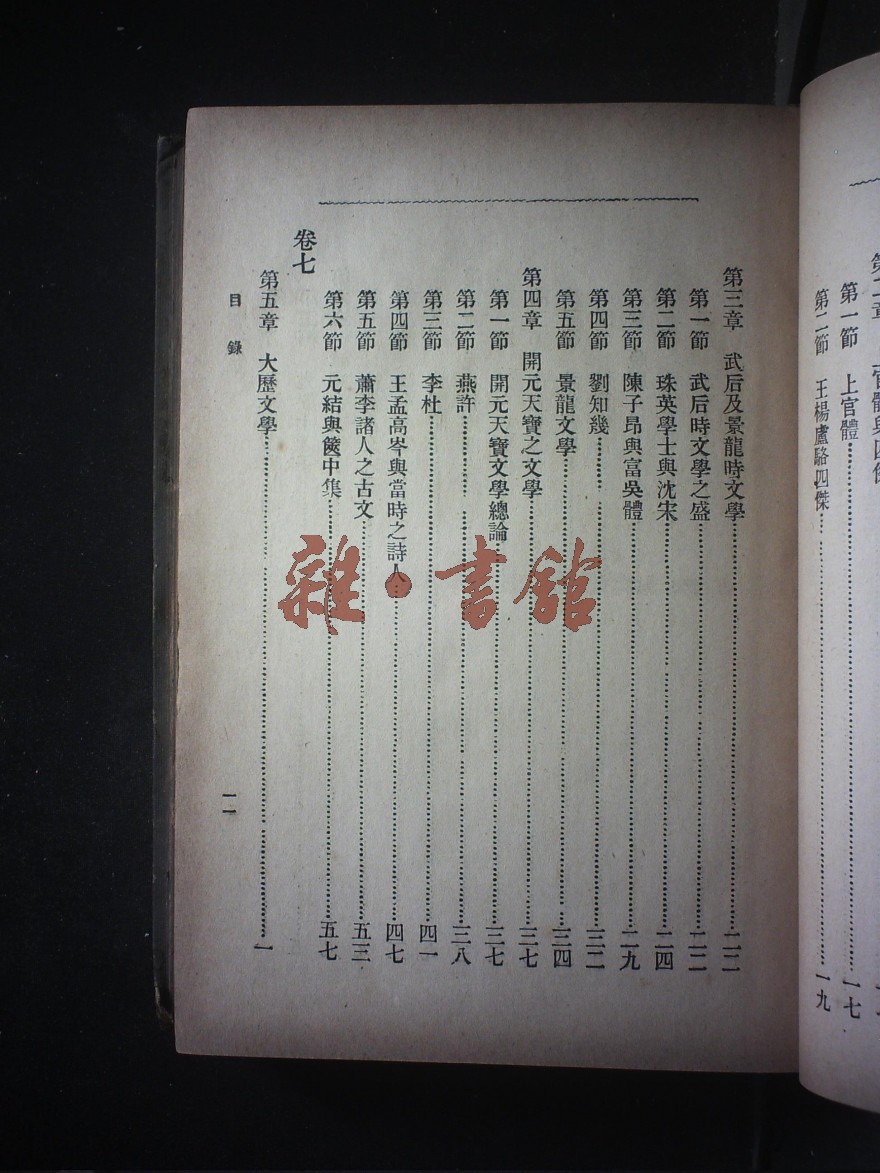 第一節 上官體 一七
第二節 王楊盧駱四傑 一九
第三章 武后及景龍時文學 二二
第一節 武后時文學之盛 二二
第二節 珠英學士與沈宋 二四
第三節 陳子昂與富吳體 二九
第四節 劉知幾 三二
第五節 景龍文學 三四
第四章 開元天寶之文學 三七
第一節 開元天寶文學總論 三七
第二節 燕許 三八
第三節 李杜 四一
第四節 王孟高岑與當時之詩人 四七
第五節 蕭李諸人之古文 五三
第六節 元結與篋中集 五七
卷七
第五章 大歷文學 一
目錄
一一
雜·書館